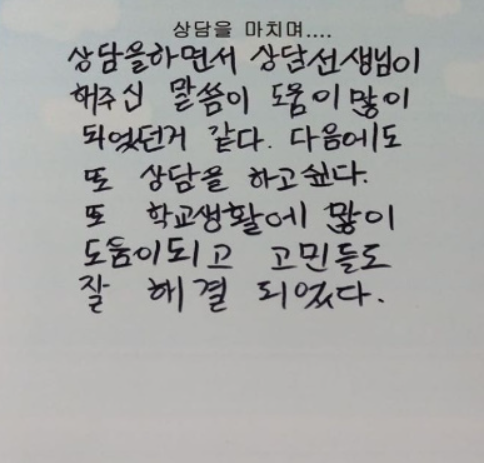 상담을 마치며....
상담을하면서 상담선생님이
해주신 말씀이 도움이많이
되었던거 같다. 다음에도
또 상담을 하고싶다.
또 학교생활에 많이
도움이되고 고민들도
잘 해결 되었다.